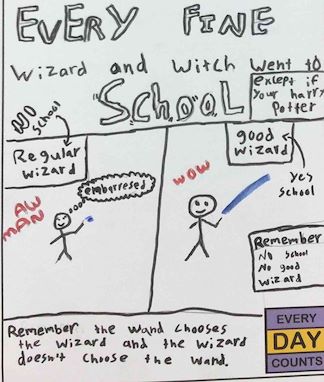 EVERY FINE
Wizard and Witch Went to
"SCHOOL"
except if
your harry
Potter
NO
School
Regular
Wizard
embarresed
AW
MAN
good
wizard
WOW
yes
School
Remember
No school
No good
wizard
Remember the wand chooses
the wizard and the wizard
doesn't choose the wand.
EVERY
DAY
COUNTS